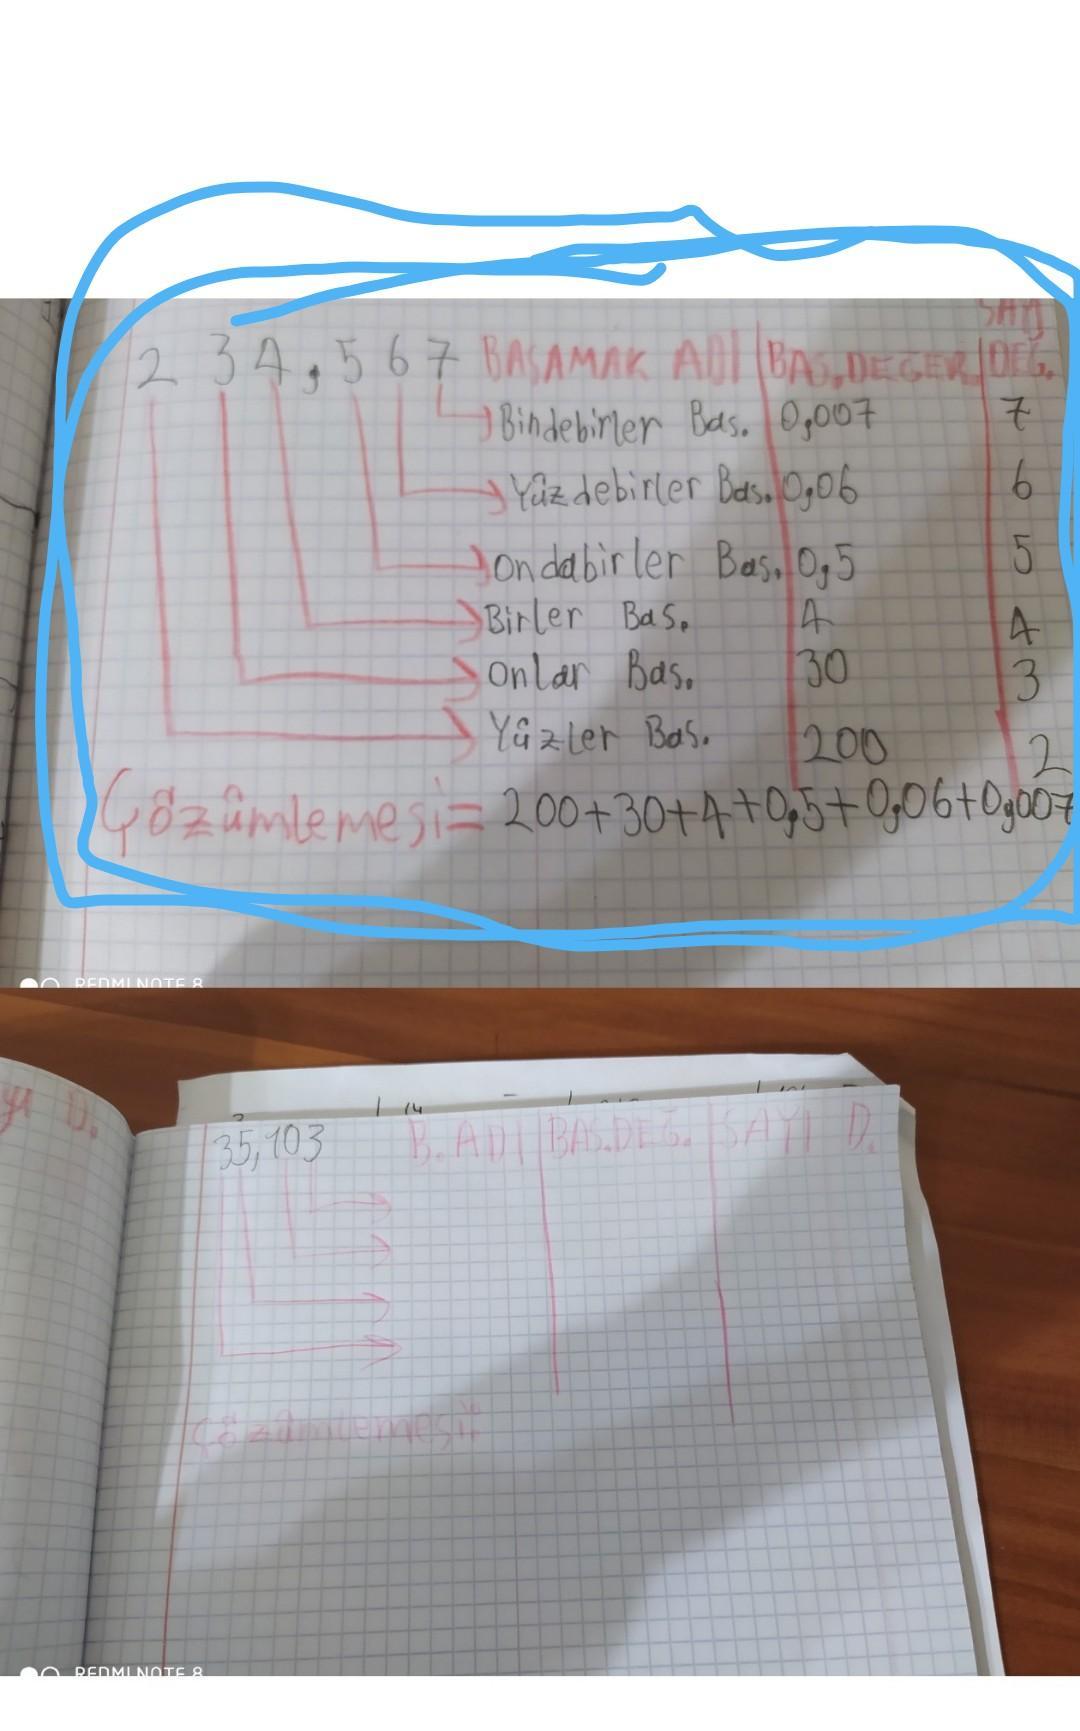 SAYI
2 3 4 , 5 6 7 BASAMAK ADI BAS.DEĞER. DEĞ.
Bindebirler Bas. 0,007 7
Yüzdebirler Bas. 0,06 6
Ondabirler Bas. 0,5 5
Birler Bas. 4 4
Onlar Bas. 30 3
Yüzler Bas. 200 2
Çözümlemesi= 200+30+4+0,5+0,06+0,007
REDMI NOTE 8
D.
35,103 B. ADI BAS.DEĞ. SAYI D.
Çözümlemesi=
REDMI NOTE 8